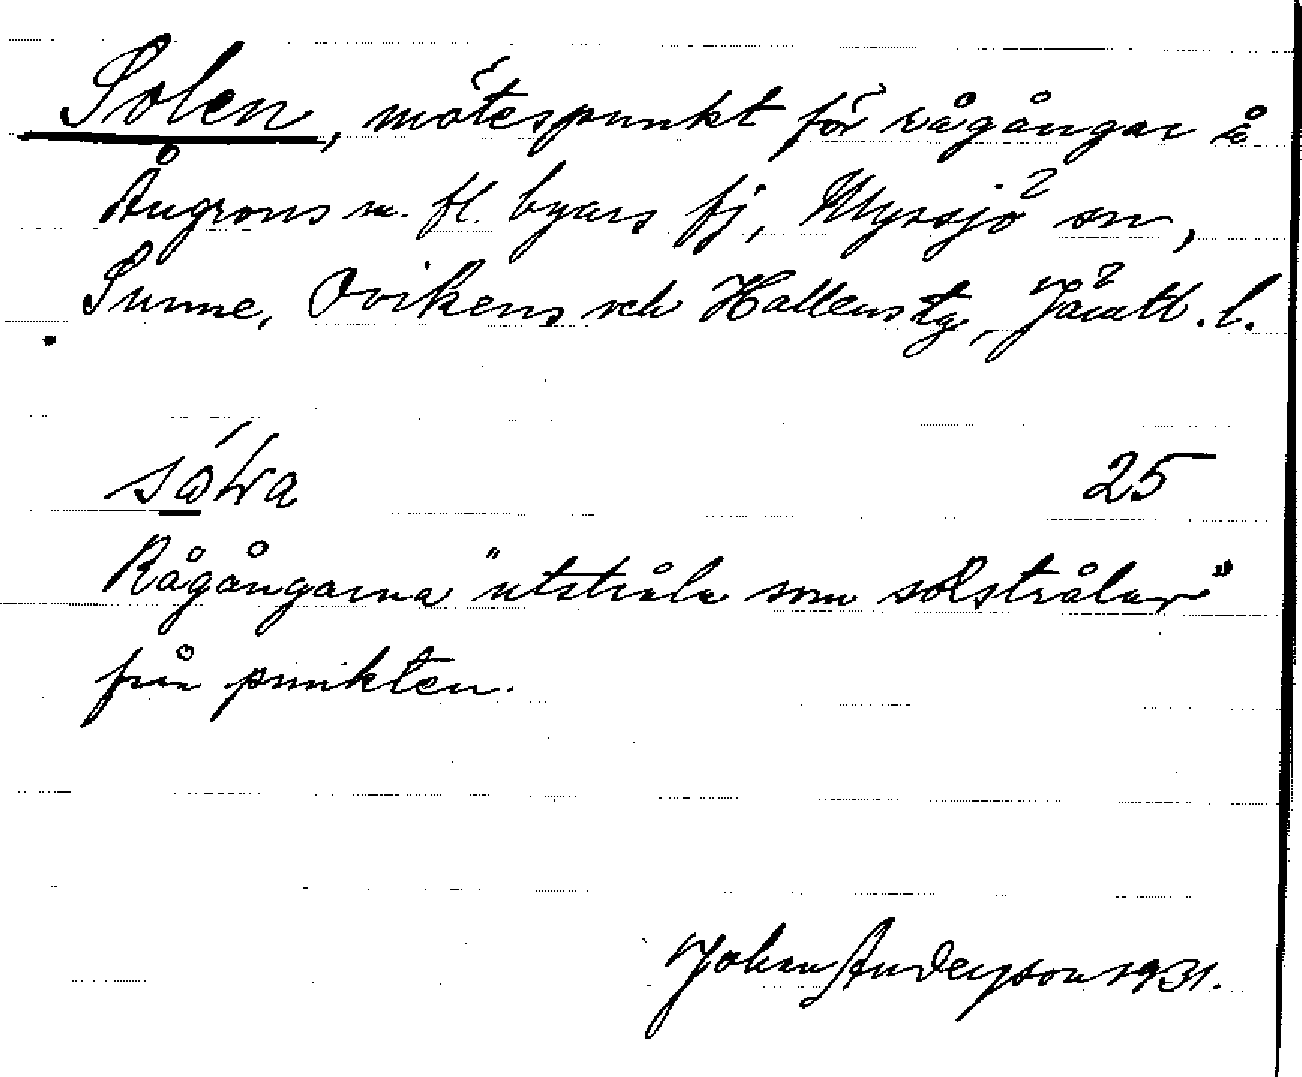 Solen, mötespunkt för rågångar å
Ångrons m. fl. byars fj, Myssjö sn,
Sunne, Ovikens och Hallens tg, Jämtl. l.
25
Rågångarna "utstråla som solstrålar"
från punkten.
Johan Anderson 1931.